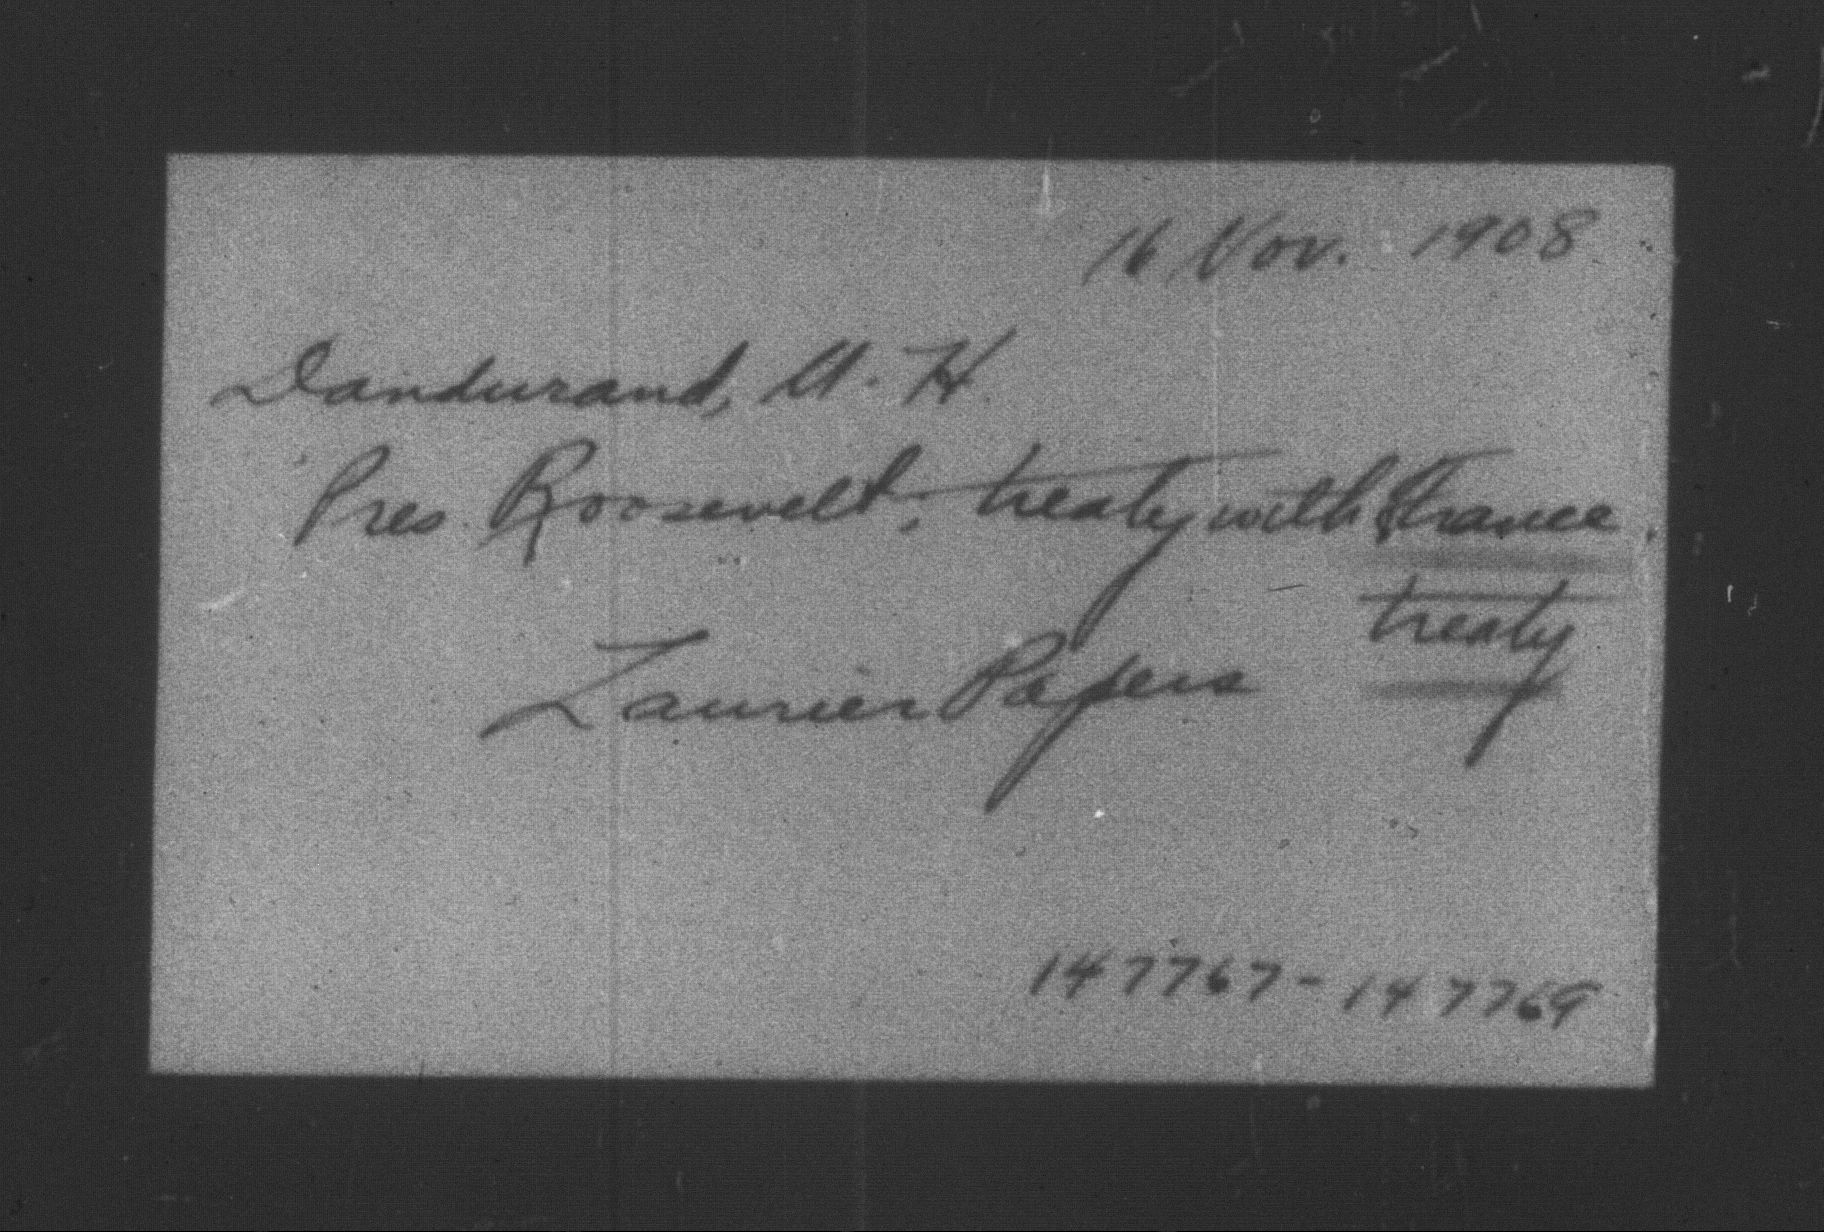 16 Nov. 1908
Dandurand, U. H.
Pres. Roosevelt; treaty with France.
treaty
Laurier Papers
147767-147769